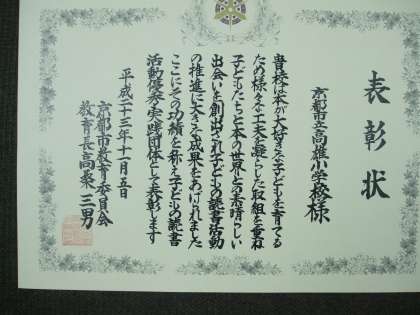 表彰状
京都市立高雄小学校様
貴校は本が大好きな子どもを育てる
ため様々な工夫を凝らした取組を重ね
子どもたちと本の世界との素晴らしい
出会いを創出され子どもの読書活動
の推進に大きな成果をあげられました
ここにその功績を称え子どもの読書
活動優秀実践団体として表彰します
平成二十三年十一月五日
京都市教育委員会
教育長高桑三男